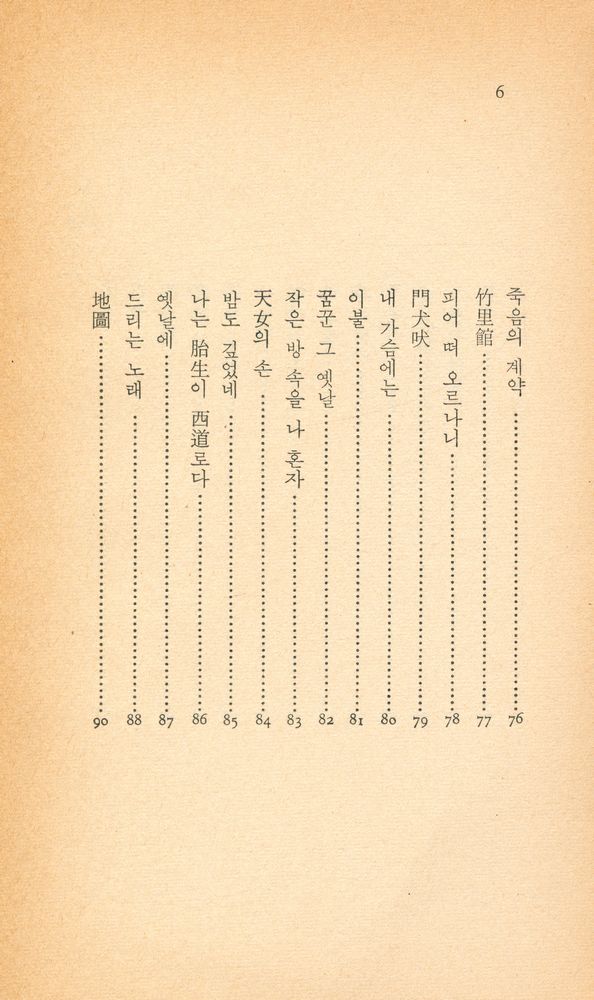 6
죽음의 계약 76
竹里館 77
피어 떠 오르나니 78
門犬吠 79
내 가슴에는 80
이불 81
꿈꾼 그 옛날 82
작은 방 속을 나 혼자 83
天女의 손 84
밤도 깊었네 85
나는 胎生이 西道로다 86
옛날에 87
드리는 노래 88
地圖 90